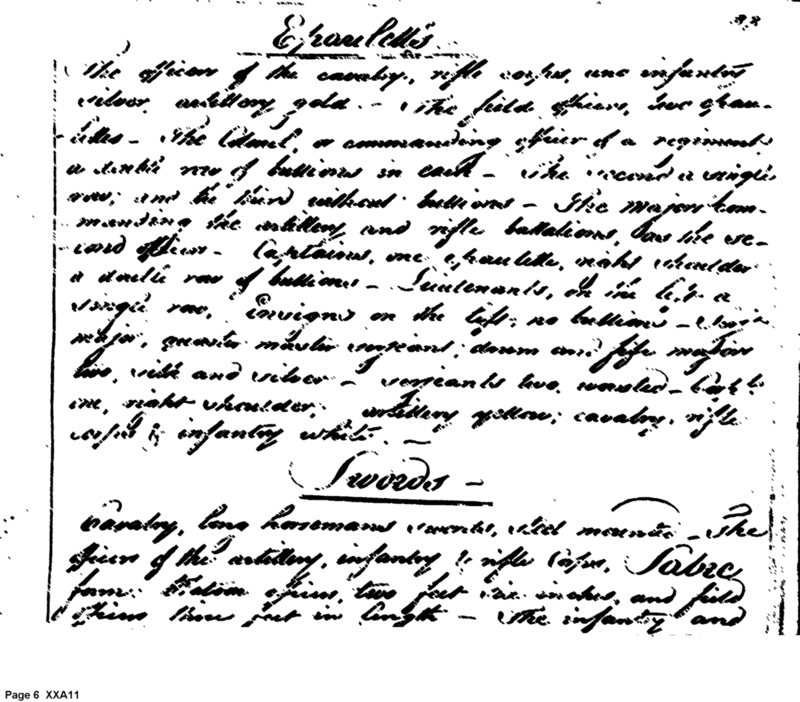 Epauletts
The officers of the cavalry, rifle corps, and infantry
silver, artillery gold – The field officers, two epau-
letts – The Colonel, or commanding officer of a regiment
a double row of bullions in each – The second a single
row; and the third without bullions – The Majors com-
manding the artillery and rifle battalions, as the se-
cond officer – Captains, one epaulette, right shoulder
a double row of bullions – Lieutenants, on the left a
single row, Ensigns on the left; no bullions –
major, quarter master serjeant; drum and fife majors
two, silk and silver – Serjeants two, worsted –
one, right shoulder; artillery yellow; cavalry, rifle
corps & infantry white. –
Swords –
Cavalry, long horsemans swords, steel mounted – The
officers of the artillery, infantry & rifle Corps, Sabre
form: officers, two feet six inches, and field
officers three feet in length – The infantry and
Page 6 XXA11